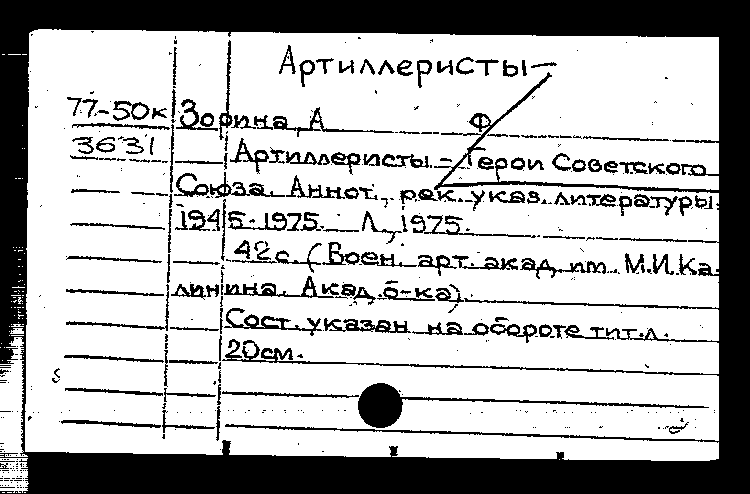 Артиллеристы—
77-50к Зорина, А Ф
3631 Артиллеристы - Герои Советского
Союза. Аннот., рек. указ. литературы.
1945-1975. Л., 1975.
42с. (Воен. арт. акад. им. М.И.Ка-
линина. Акад. б-ка).
Сост. указан на обороте тит.л.
20см.